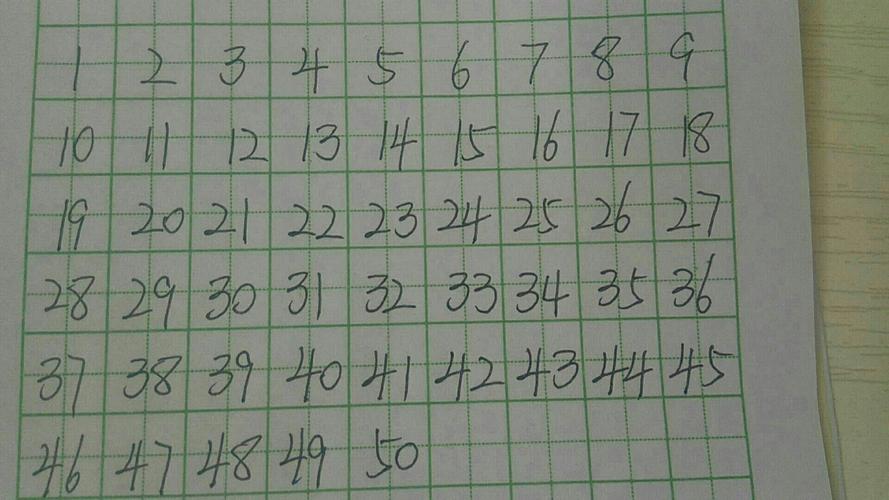 1 2 3 4 5 6 7 8 9
10 11 12 13 14 15 16 17 18
19 20 21 22 23 24 25 26 27
28 29 30 31 32 33 34 35 36
37 38 39 40 41 42 43 44 45
46 47 48 49 50